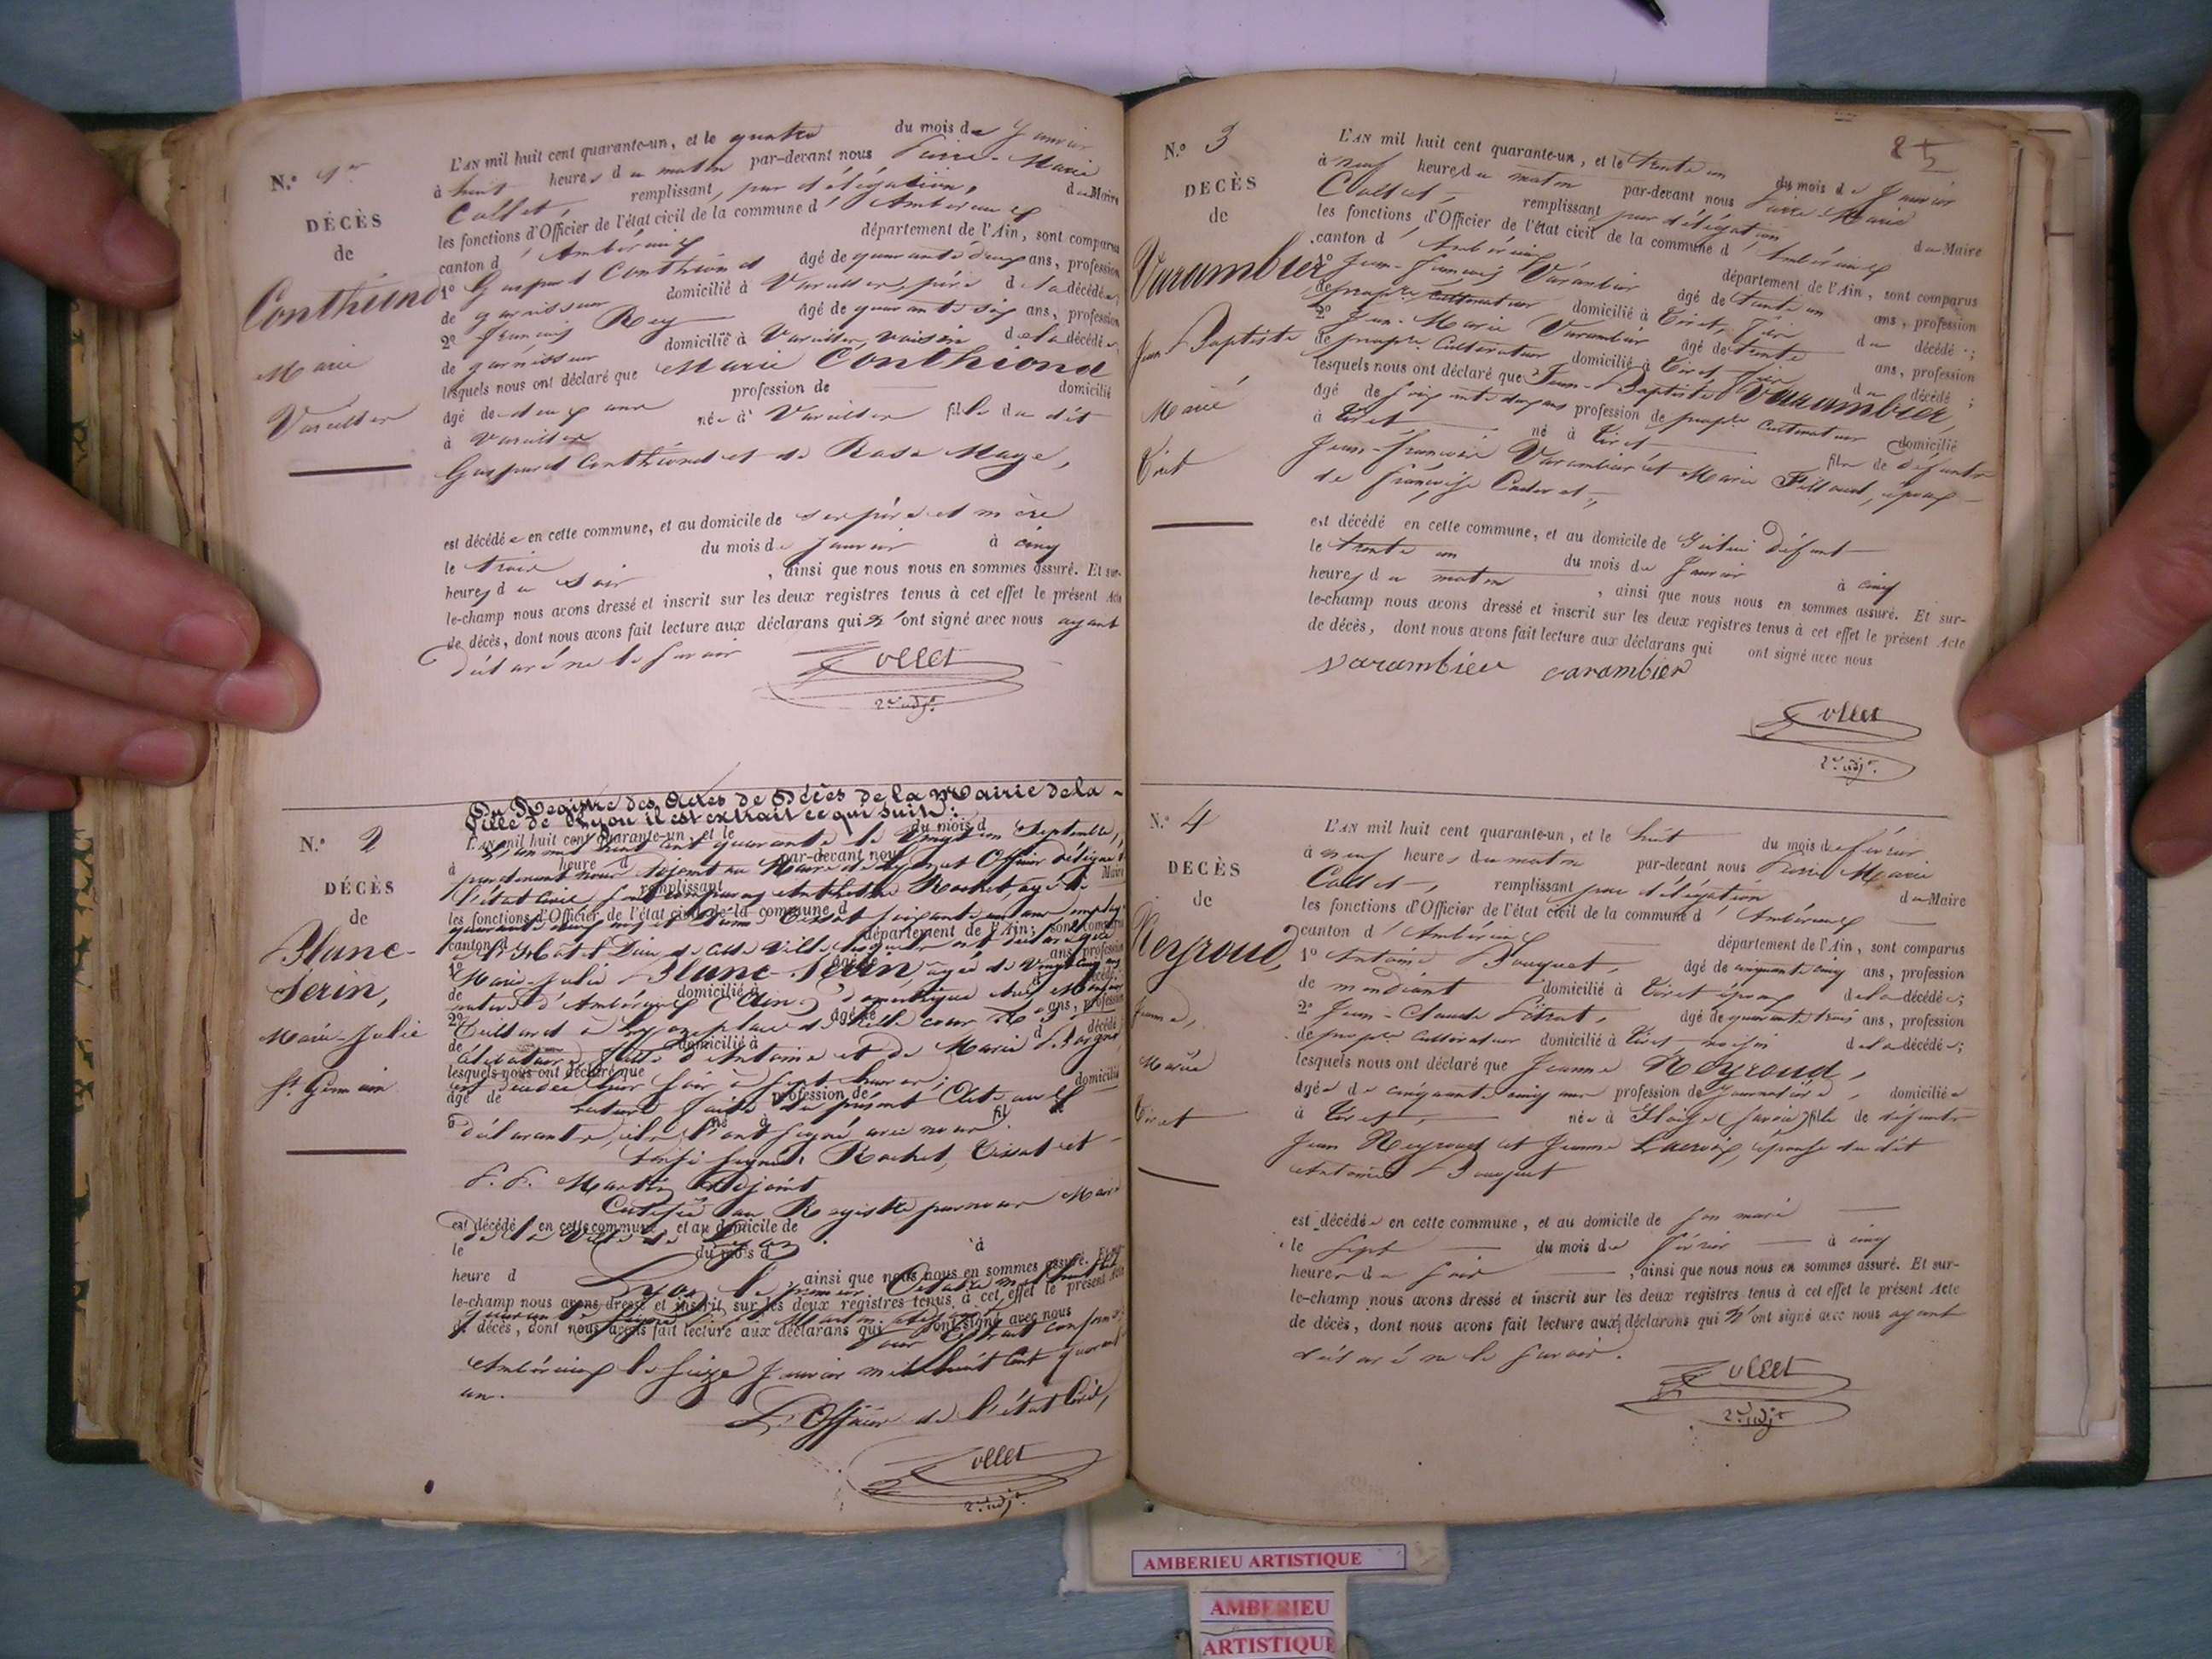 N.° 1er
DÉCÈS
de
Conthiond
Marie
Vareilles
L'AN mil huit cent quarante-un, et le quatre du mois de Janvier
à huit heures du matin par-devant nous Pierre-Marie
Collet, remplissant, par délégation, du Maire
les fonctions d'Officier de l'état civil de la commune d'Ambérieux
canton d'Ambérieux département de l'Ain, sont comparus
1° Gaspard Conthiond âgé de quarante deux ans, profession
de garnisseur domicilié à Vareilles, père de la décédée;
2° François Rey âgé de quarante six ans, profession
de garnisseur domicilié à Vareilles, voisin de la décédée;
lesquels nous ont déclaré que Marie Conthiond
âgé de deux ans profession de domicilié
à Vareilles née à Vareilles fille du dit
Gaspard Conthiond et de Rose Maye,
est décédée en cette commune, et au domicile de ses père et mère
le trois du mois de Janvier à cinq
heures du soir, ainsi que nous nous en sommes assuré. Et sur-
le-champ nous avons dressé et inscrit sur les deux registres tenus à cet effet le présent Acte
de décès, dont nous avons fait lecture aux déclarans qui n'ont signé avec nous ayant
déclaré ne le savoir
Collet
2e adjt.
N.° 2
DÉCÈS
de
Blanc-
Serin,
Marie-Julie
St. Germain
Du Registre des Actes de Décès de la Mairie de la
Ville de Lyon il est extrait ce qui suit:
L'AN mil huit cent quarante-un, et le du mois d
L'an mil huit cent quarante le vingt un Septembre,
à heure d par-devant nous
par devant nous adjoint au Maire de Lyon et Officier délégué de
remplissant Maire
l'état civil sont comparus Anthelme Rochet, âgé de
les fonctions d'Officier de l'état civil de la commune d
quarante neuf ans et Tissot soixante un ans, employés
canton d département de l'Ain, sont comparus
à l'Hôtel Dieu de cette Ville lesquels ont déclaré que
1° âgé de ans, profession
Marie-Julie Blanc-Serin, âgée de vingt cinq ans
de domicilié à décédé
native d'Ambérieux (Ain) domestique chez Monsieur
2° âgé de ans, profession
à Lyon place de Belle cour
de domicilié à d décédé
célibataire, fille d'Antoine et de Marie
lesquels nous ont déclaré que
est décédée hier soir à sept heures;
âgé de profession de domicilié
lecture faite du présent Acte aux
à né à fil
déclarants, ils l'ont signé avec nous
Ainsi signé: Rochet, Tissot et
Martin Adjoint
Certifié au Registre par nous Maire
est décédé en cette commune, et au domicile de
de la Ville de Lyon
le du mois d à
heure d , ainsi que nous nous en sommes assuré. Et sur-
Lyon le premier Octobre mil huit cent
le-champ nous avons dressé et inscrit sur les deux registres tenus à cet effet le présent Acte
quarante signé Martin
de décès, dont nous avons fait lecture aux déclarans qui ont signé avec nous
Pour Extrait conforme
Ambérieux le seize Janvier mil huit cent quarante
un.
L'Officier de l'état Civil,
Collet
2e adjt.
85
N.° 3
DECÈS
de
Varambier
Jean-Baptiste
Marié
Tiret
L'AN mil huit cent quarante-un, et le trente un du mois de Janvier
à neuf heures du matin par-devant nous Pierre Marie
Collet, remplissant par délégation du Maire
les fonctions d'Officier de l'état civil de la commune d'Ambérieux
canton d'Ambérieux département de l'Ain, sont comparus
1° Jean-François Varambier âgé de trente un ans, profession
de propre. Cultivateur domicilié à Tiret, fils du décédé;
2° Jean-Marie Varambier âgé de trente ans, profession
de propre. Cultivateur domicilié à Tiret fils du décédé;
lesquels nous ont déclaré que Jean-Baptiste Varambier,
âgé de soixante deux ans profession de propre. cultivateur domicilié
à Tiret né à Tiret fils de défunts
Jean-François Varambier et Marie Filliaud, époux
de Françoise
est décédé en cette commune, et au domicile de Lui défunt
le trente un du mois de Janvier à cinq
heures du matin, ainsi que nous nous en sommes assuré. Et sur-
le-champ nous avons dressé et inscrit sur les deux registres tenus à cet effet le présent Acte
de décès, dont nous avons fait lecture aux déclarans qui ont signé avec nous
varambier varambier
Collet
2e adjt.
N.° 4
DECÈS
de
Neyroud,
Jeanne,
Mariée
Tiret
L'AN mil huit cent quarante-un, et le huit du mois de février
à neuf heures du matin par-devant nous Pierre Marie
Collet, remplissant par délégation du Maire
les fonctions d'Officier de l'état civil de la commune d'Ambérieux
canton d'Ambérieux département de l'Ain, sont comparus
1° Antoine Bouquet, âgé de cinquante cinq ans, profession
de mendiant domicilié à Tiret époux de la décédée;
2° Jean-Claude âgé de quarante trois ans, profession
de propre cultivateur domicilié à Tiret voisin de la décédée;
lesquels nous ont déclaré que Jeanne Neyroud,
âgée de cinquante cinq ans profession de Journalière, domiciliée
à Tiret, née à (Savoie) fille de défunts
Jean Neyroud et Jeanne Lacroix, épouse du dit
Antoine Bouquet
est décédée en cette commune, et au domicile de son mari
le sept du mois de février à cinq
heures du soir, ainsi que nous nous en sommes assuré. Et sur-
le-champ nous avons dressé et inscrit sur les deux registres tenus à cet effet le présent Acte
de décès, dont nous avons fait lecture aux déclarans qui n'ont signé avec nous ayant
déclaré ne le savoir.
Collet
2e adjt
AMBERIEU ARTISTIQUE
AMBERIEU
ARTISTIQUE